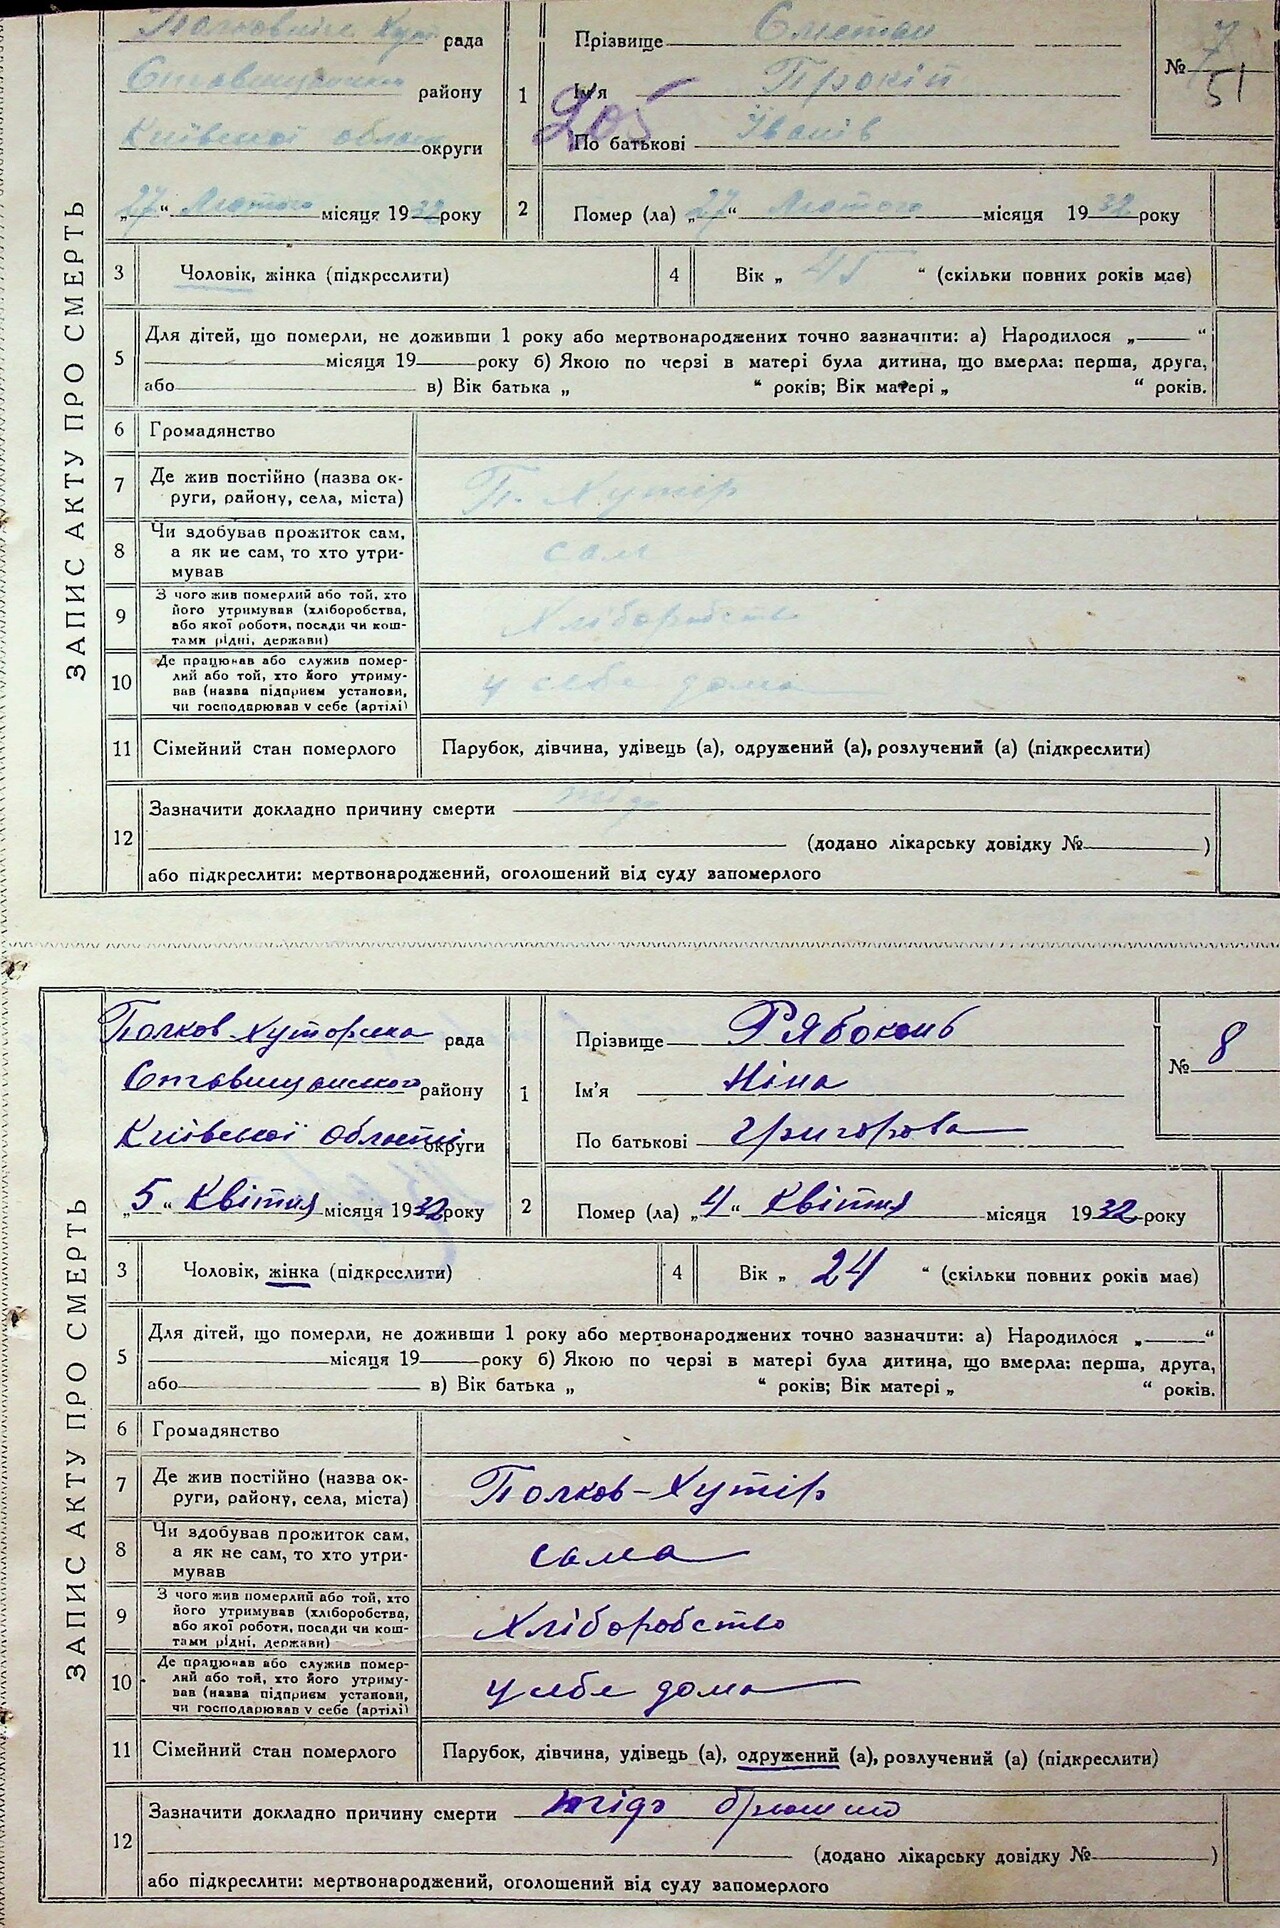 ЗАПИС АКТУ ПРО СМЕРТЬ
рада
району
Київської округи
„27“ Лютого місяця 1932 року
1
Прізвище Сметан
Ім'я Прокіп
По батькові Іванів
205
№ 7
51
2 Помер (ла) „27“ Лютого місяця 1932 року
3 Чоловік, жінка (підкреслити)
4 Вік „ 45 “ (скільки повних років має)
5 Для дітей, що померли, не доживши 1 року або мертвонароджених точно зазначити: а) Народилося „ “
місяця 19 року б) Якою по черзі в матері була дитина, що вмерла: перша, друга,
або в) Вік батька „ “ років; Вік матері „ “ років.
6 Громадянство
7 Де жив постійно (назва ок-
руги, району, села, міста) П. Хутір
8 Чи здобував прожиток сам,
а як не сам, то хто утри-
мував сам
9 З чого жив померлий або той, хто
його утримував (хліборобства,
або якої роботи, посади чи кош-
тами рідні, держави) Хліборобство
10 Де працював або служив помер-
лий або той, хто його утриму-
вав (назва підприєм установи,
чи господарював у себе (артілі) у себе дома
11 Сімейний стан померлого Парубок, дівчина, удівець (а), одружений (а), розлучений (а) (підкреслити)
12 Зазначити докладно причину смерти
(додано лікарську довідку № )
або підкреслити: мертвонароджений, оголошений від суду запомерлого
ЗАПИС АКТУ ПРО СМЕРТЬ
Полков-Хуторська рада
Ставищанського району
Київської області округи
„5“ Квітня місяця 1932 року
1
Прізвище Рябоконь
Ім'я Ніна
По батькові Григорова
№ 8
2 Помер (ла) „4“ Квітня місяця 1932 року
3 Чоловік, жінка (підкреслити)
4 Вік „ 24 “ (скільки повних років має)
5 Для дітей, що померли, не доживши 1 року або мертвонароджених точно зазначити: а) Народилося „ “
місяця 19 року б) Якою по черзі в матері була дитина, що вмерла: перша, друга,
або в) Вік батька „ “ років; Вік матері „ “ років.
6 Громадянство
7 Де жив постійно (назва ок-
руги, району, села, міста) Полков-Хутір
8 Чи здобував прожиток сам,
а як не сам, то хто утри-
мував сама
9 З чого жив померлий або той, хто
його утримував (хліборобства,
або якої роботи, посади чи кош-
тами рідні, держави) Хліборобство
10 Де працював або служив помер-
лий або той, хто його утриму-
вав (назва підприєм установи,
чи господарював у себе (артілі) у себе дома
11 Сімейний стан померлого Парубок, дівчина, удівець (а), одружений (а), розлучений (а) (підкреслити)
12 Зазначити докладно причину смерти
(додано лікарську довідку № )
або підкреслити: мертвонароджений, оголошений від суду запомерлого